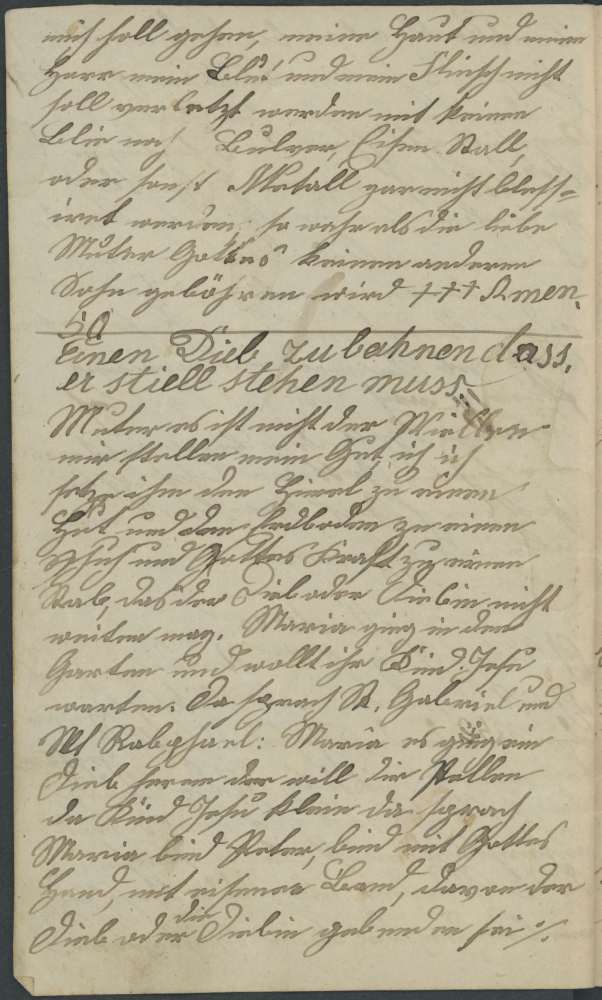 mich soll gehen, meine Haut und meine
Haar mein Blut und mein Fleisch nicht
soll verletzt werden mit keinem
Blie noch Bulver, Eisen Stall,
oder sonst Metall gar nicht bless=
iret werden, so wahr als die liebe
Muter Gottes keinen anderen
Sohn gebähren wird ††† Amen.
50
Einen Dieb zu bahnen dass,
er stiell stehen muss.
Muter es ist nicht der
mir stellen mein Gut, ich
setze ihm den Himel zu einem
Hut und den Erdboden zu einen
Schuh und Gottes Kraft zu einen
Stab, das der Dieb oder Diebin nicht
weiter mag. Maria ging in den
Garten und wollt ihr Kind Jesu
warten. Da sprach St. Gabriel und
St Raphael: Maria es ging ein
Dieb herein der will dir stellen
da Kind Jesu klein da sprach
Maria bind Peter, bind mit Gottes
Hand, mit eisenen Band, davon der
Dieb oder die Diebin gebunden sei ./.